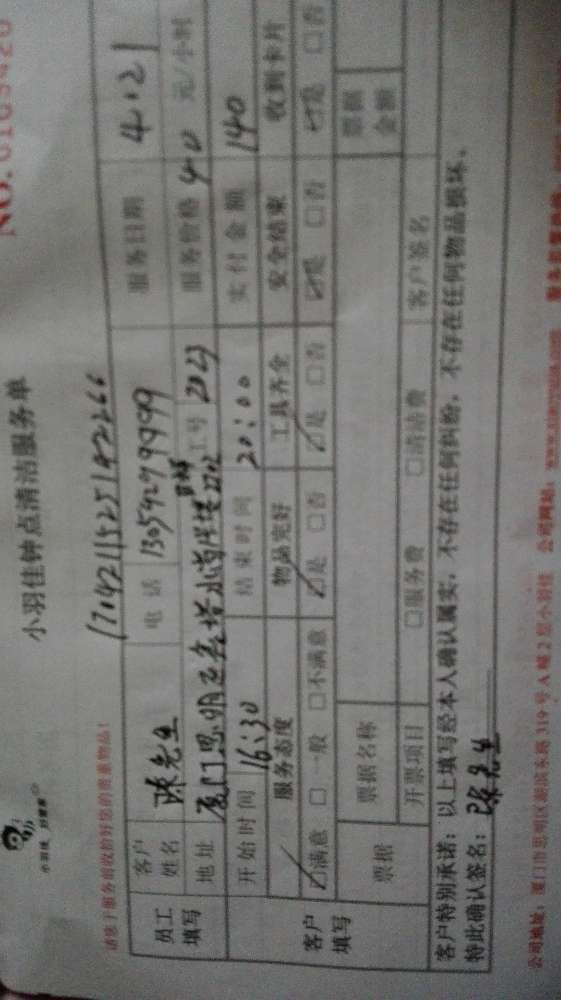 小羽佳 好管家
小羽佳钟点清洁服务单
NO. 0103420
请您于服务前收拾好您的贵重物品!
170421152514 2266
员工填写
客户姓名 陈先生 电话 13054279999 服务日期 4.21
地址 厦门思明区 工号 2023 服务价格 40 元/小时
开始时间 16:30 结束时间 20:00 实付金额 140
客户填写
服务态度 物品完好 工具齐全 安全结束 收到卡片
☑满意 □一般 □不满意 ☑是 □否 ☑是 □否 ☑是 □否 ☑是 □否
票据 票据名称 票据金额
开票项目 □服务费 □清洁费 客户签名
客户特别承诺:以上填写经本人确认属实,不存在任何纠纷,不存在任何物品损坏。
特此确认签名:陈先生
公司地址:厦门市思明区湖滨东路319号A幢2层小羽佳 公司网站: